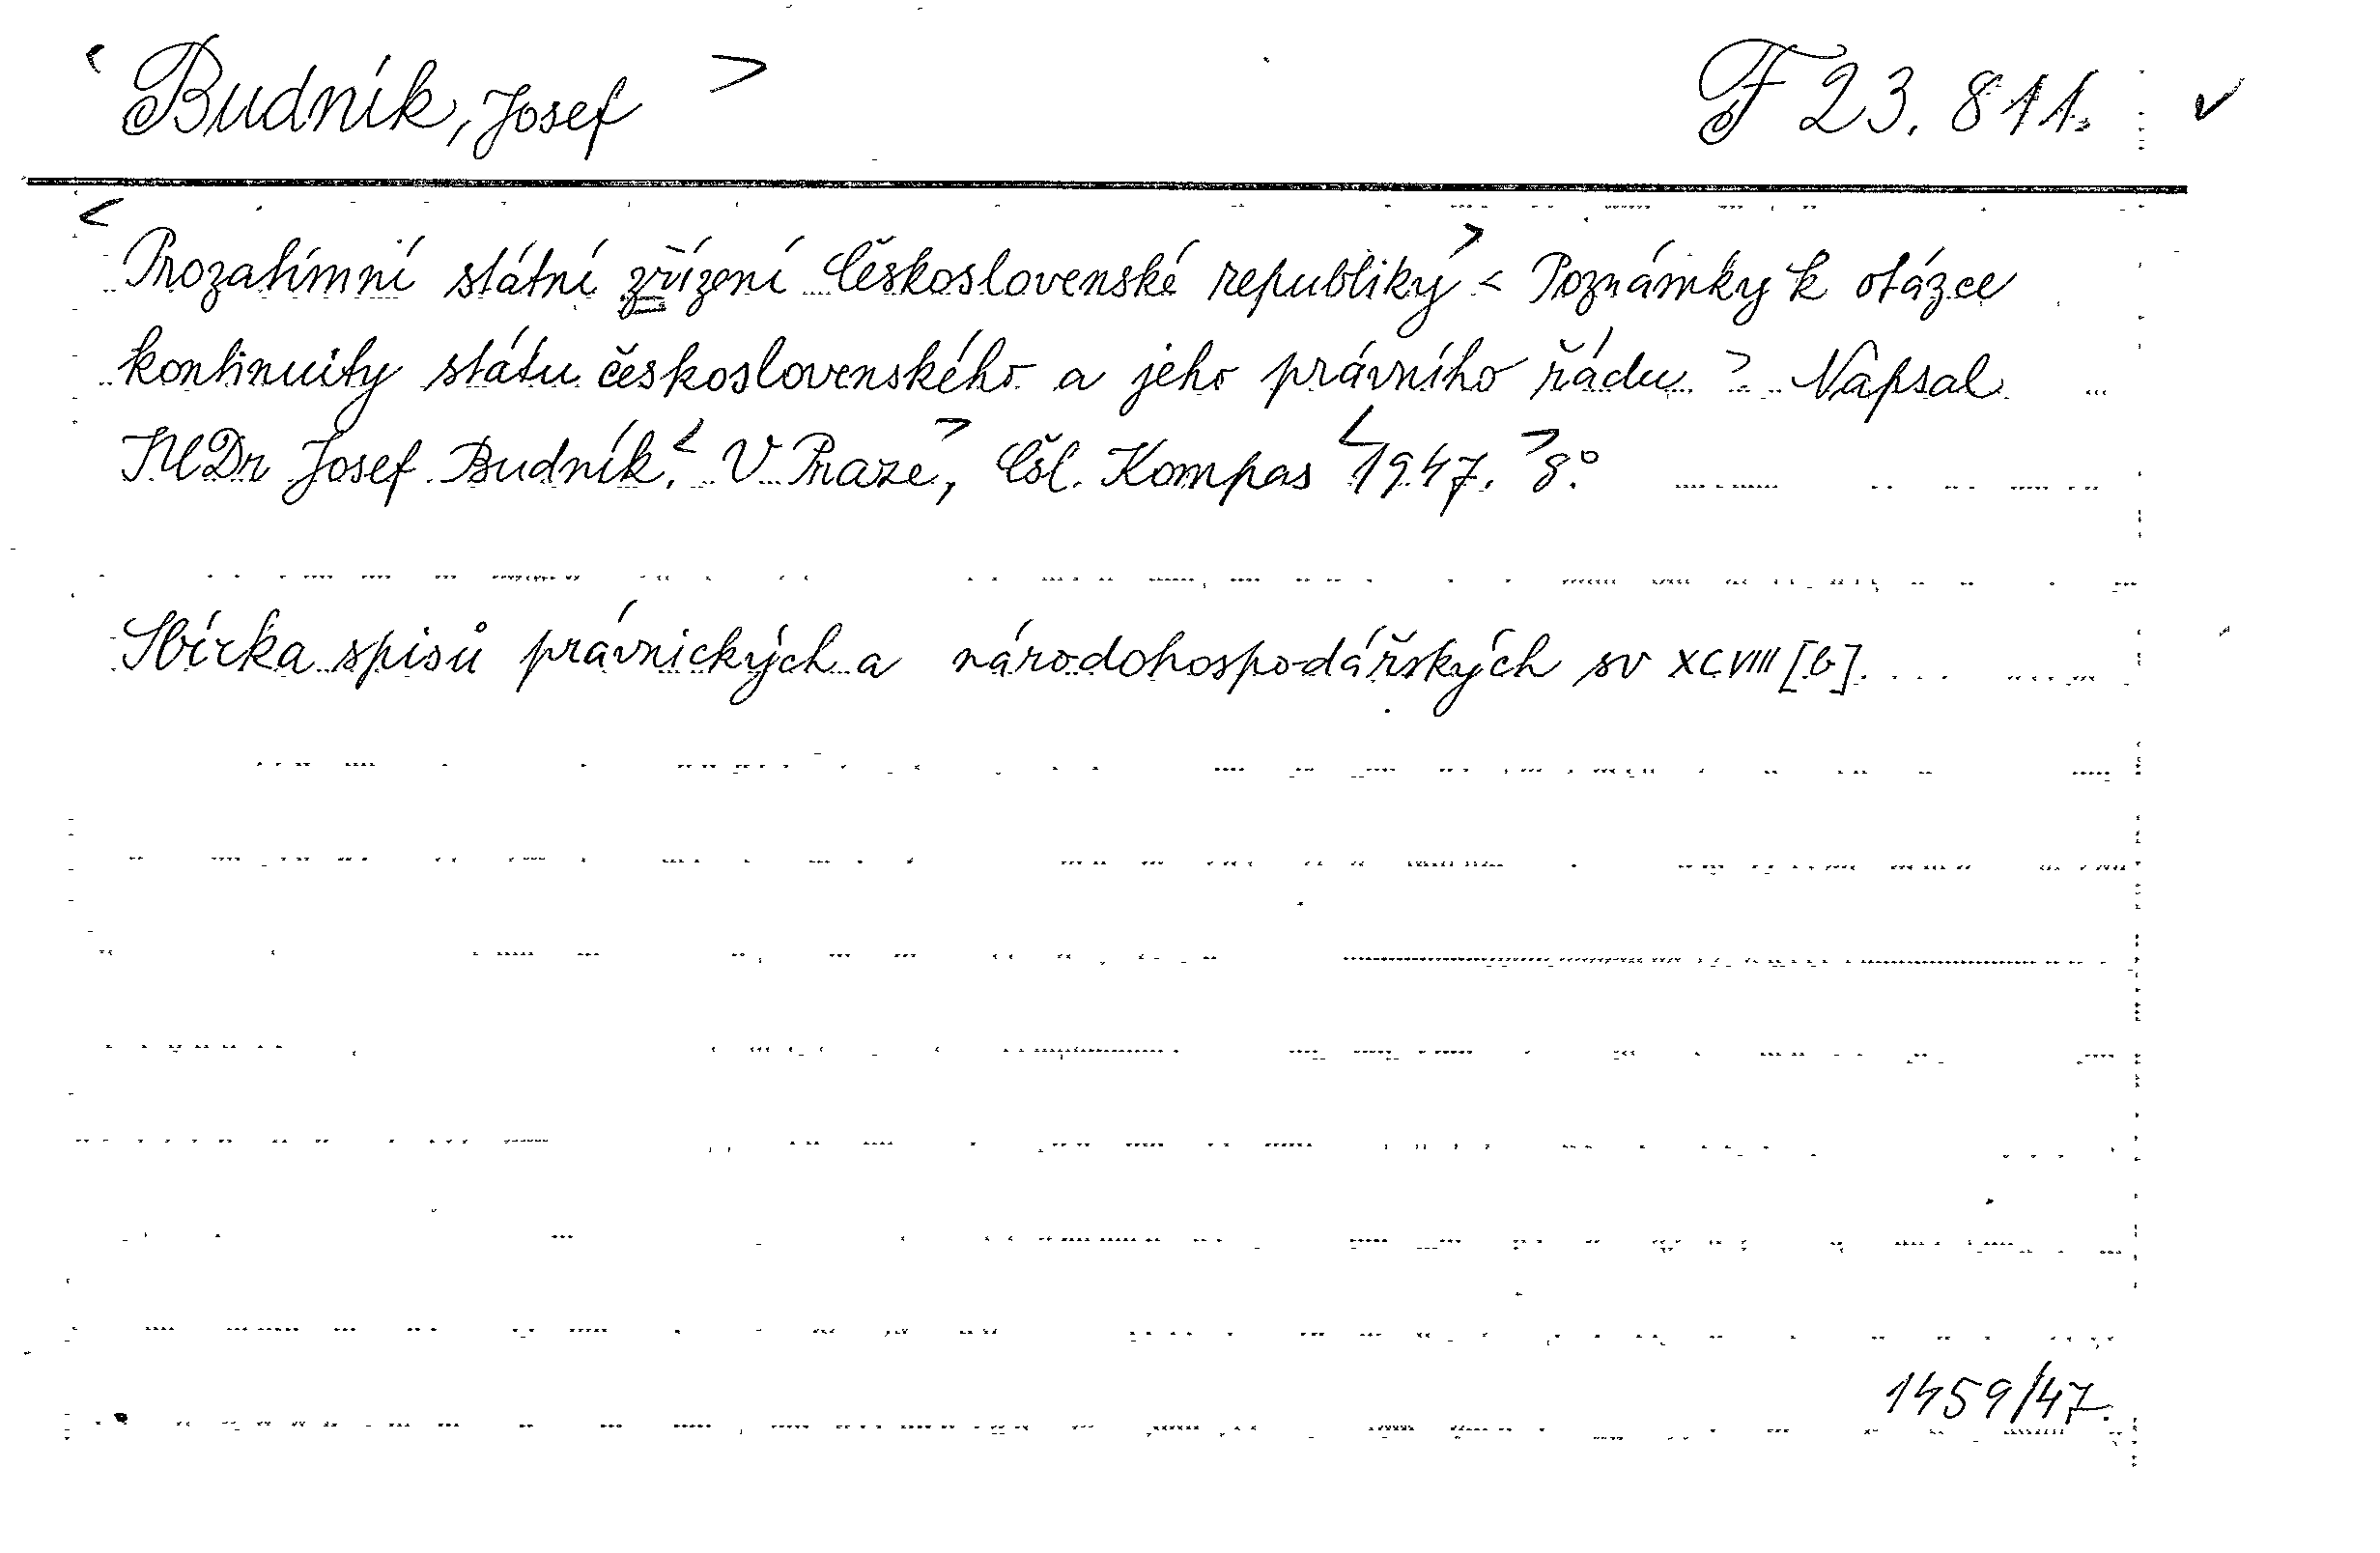 < Budník, Josef > F 23.811. ✓
< Prozatímní státní zřízení Československé republiky > < Poznámky k otázce
kontinuity státu československého a jeho právního řádu > Napsal
JUDr Josef Budník. < V Praze >, Čsl. Kompas < 1947. > 8°.
Sbírka spisů právnických a národohospodářských sv XCVIII [b].
1459/47.